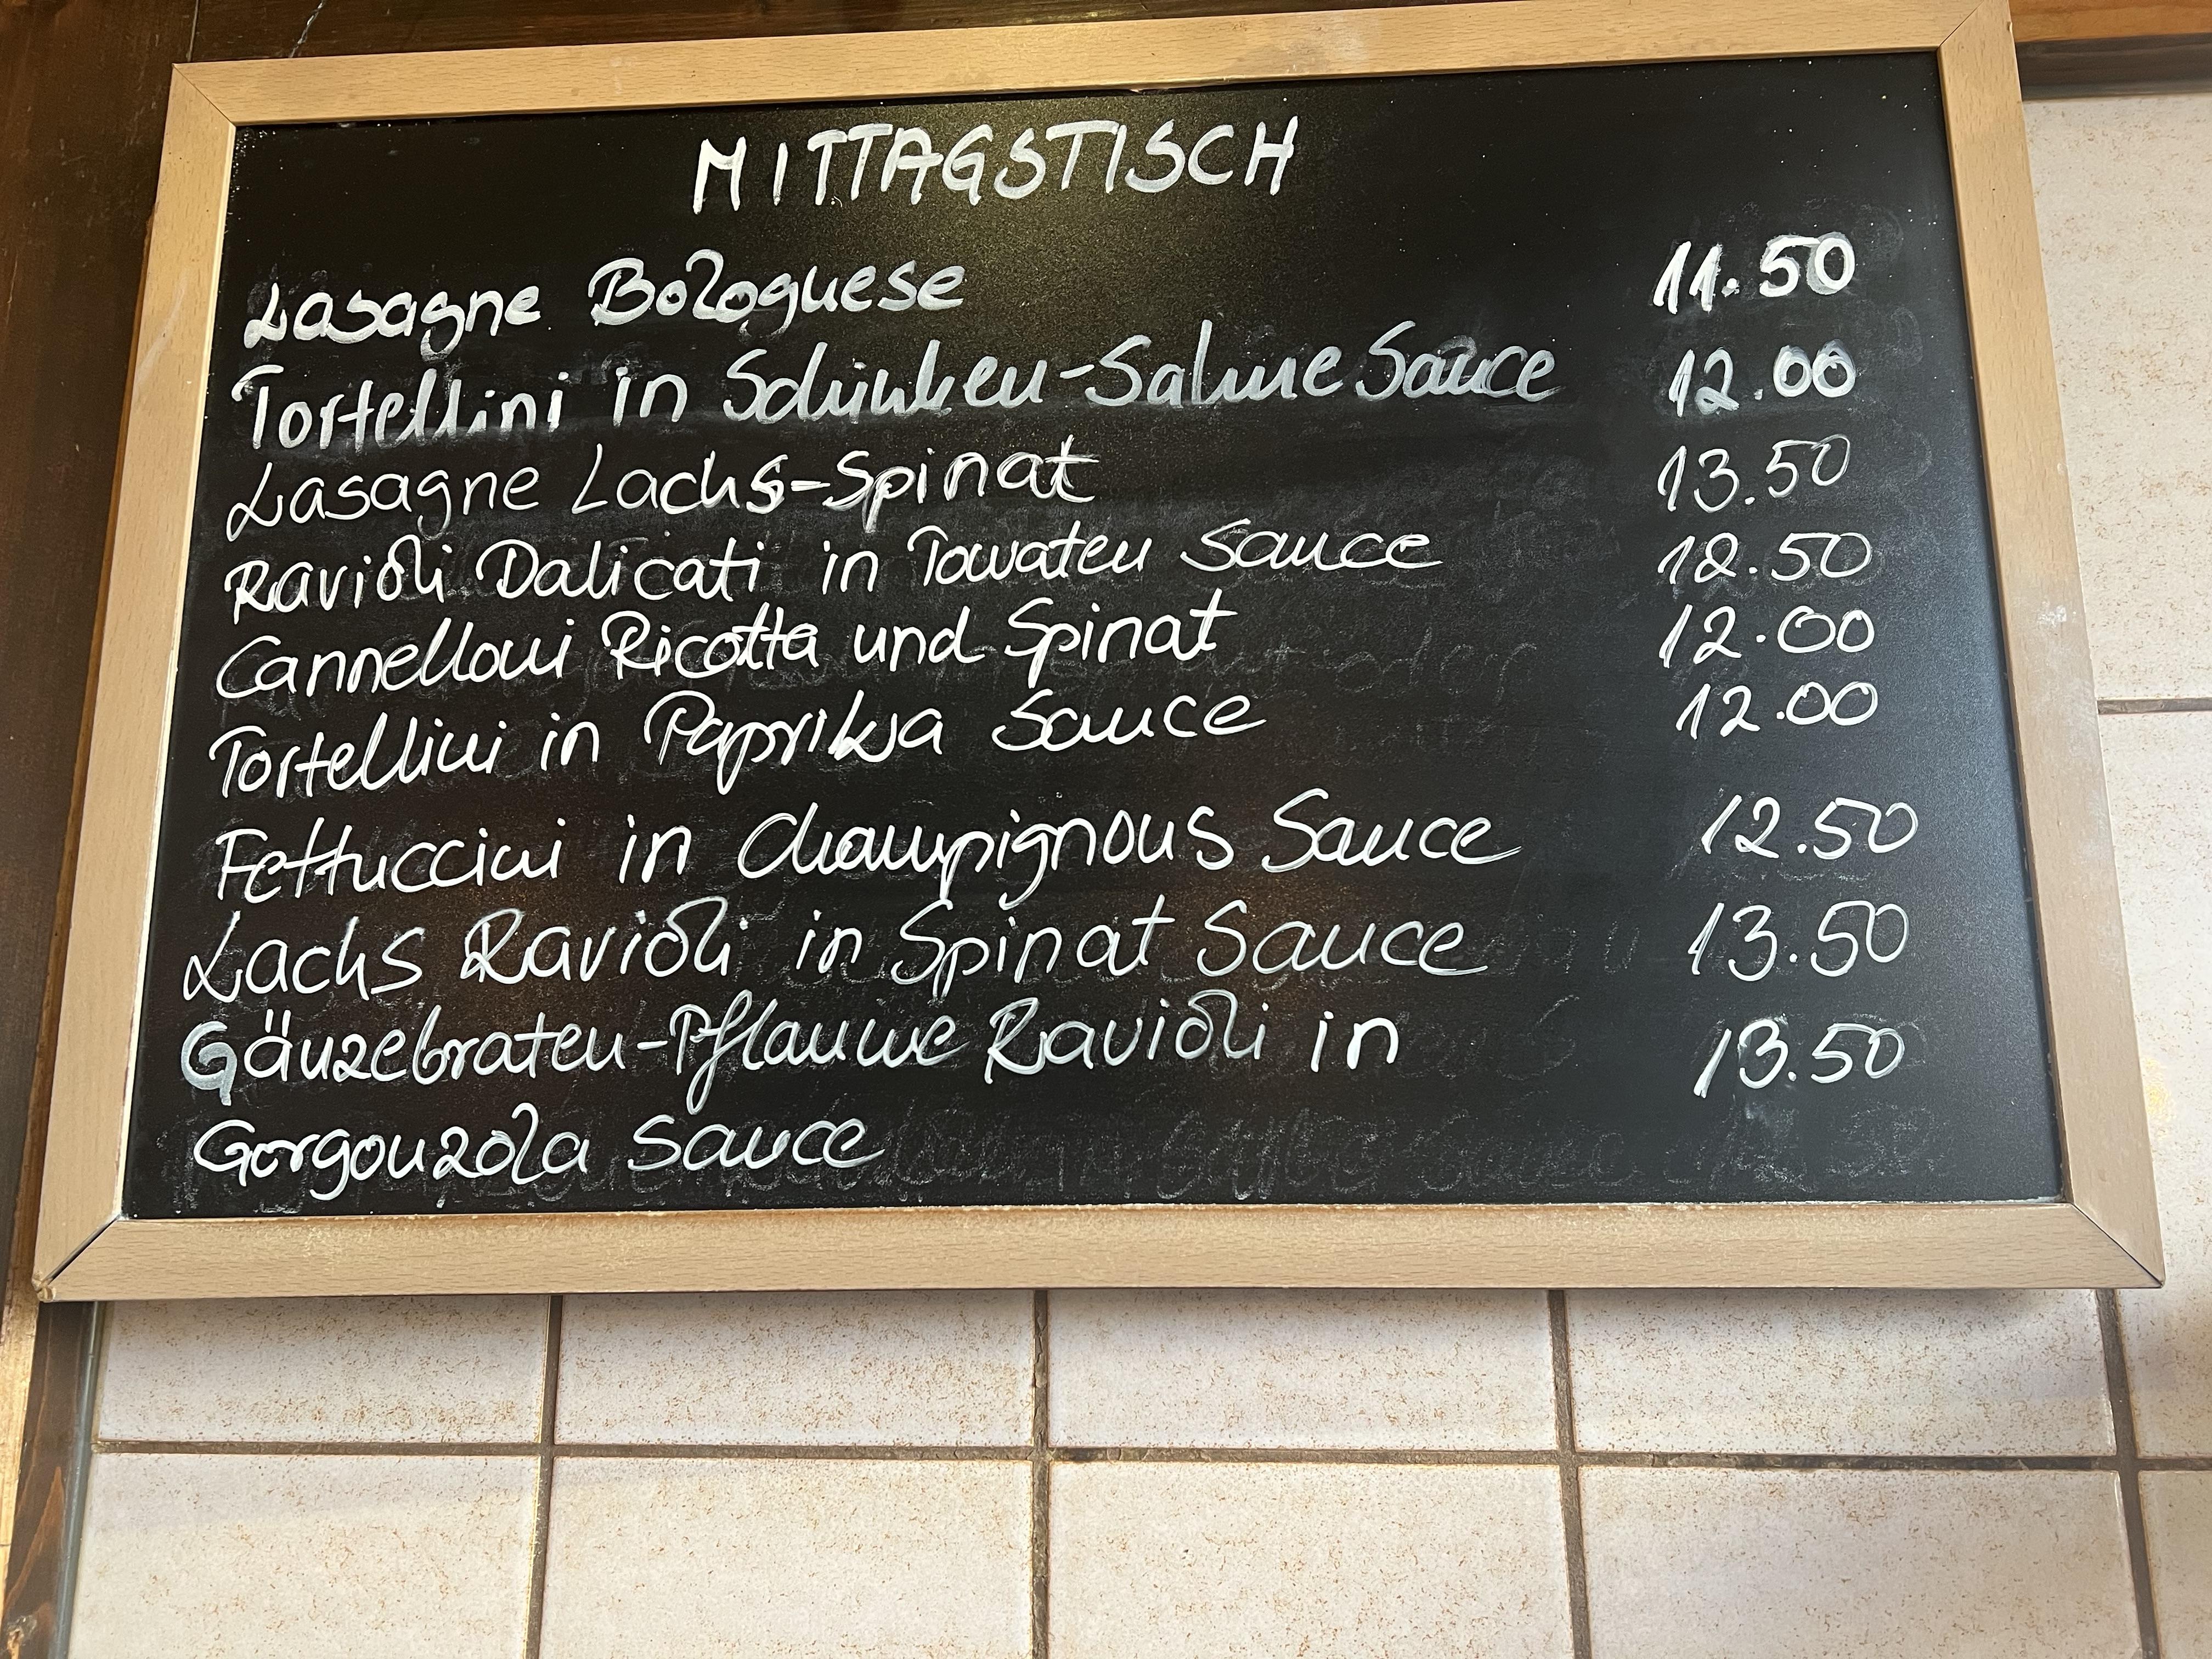 MITTAGSTISCH
Lasagne Bolognese 11.50
Tortellini in Schinken-Sahne Sauce 12.00
Lasagne Lachs-Spinat 13.50
Ravioli Dalicati in Tomaten Sauce 12.50
Cannelloni Ricotta und Spinat 12.00
Tortellini in Paprika Sauce 12.00
Fettuccini in Champignons Sauce 12.50
Lachs Ravioli in Spinat Sauce 13.50
Gänzebraten-Pflaume Ravioli in 13.50
Gorgonzola Sauce